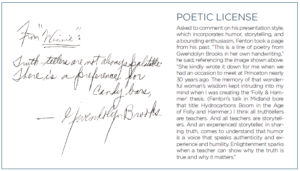 From "Winnie":
Truth-tellers are not always palatable.
There is a preference for
candy bars.
— Gwendolyn Brooks
POETIC LICENSE
Asked to comment on his presentation style,
which incorporates humor, storytelling, and
a bounding enthusiasm, Fenton took a page
from his past. "This is a line of poetry from
Gwendolyn Brooks in her own handwriting,"
he said, referencing the image shown above.
"She kindly wrote it down for me when we
had an occasion to meet at Princeton nearly
30 years ago. The memory of that wonder-
ful woman's wisdom kept intruding into my
mind when I was creating the 'Folly & Ham-
mer' thesis. (Fenton's talk in Midland bore
that title Hydrocarbons Boom in the Age
of Folly and Hammer.) I think all truthtellers
are teachers. And all teachers are storytell-
ers. And an experienced storyteller, in shar-
ing truth, comes to understand that humor
is a voice that speaks authenticity and ex-
perience and humility. Enlightenment sparks
when a teacher can show why the truth is
true and why it matters."